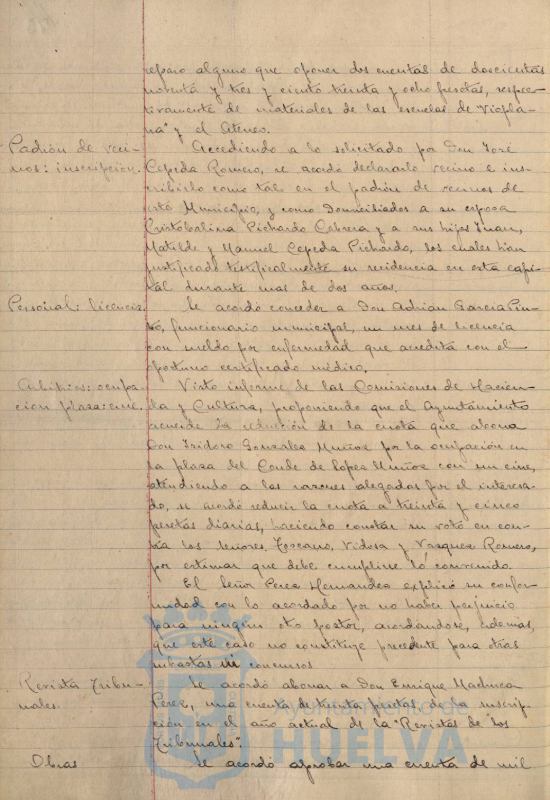 reparo alguno que oponer dos cuentas de doscientas
noventa y tres y ciento treinta y ocho pesetas, respec-
tivamente de materiales de las escuelas de "Viapla-
na" y el Ateneo.
Padrón de veci-
nos: inscripción.
Accediendo a lo solicitado por Don José
Cepeda Romero, se acordó declararlo vecino e ins-
cribirlo como tal en el padrón de vecinos de
este Municipio, y como domiciliados a su esposa
Cristobalina Pichardo Cabrera y a sus hijos Juan,
Matilde y Manuel Cepeda Pichardo, los cuales han
justificado testificalmente su residencia en esta capi-
tal durante mas de dos años.
Personal: licencia.
Se acordó conceder a Don Adrian Garcia Pin-
to, funcionario municipal, un mes de licencia
con sueldo por enfermedad que acredita con el
oportuno certificado médico.
Arbitrios: ocupa-
cion plaza: cine.
Visto informe de las Comisiones de Hacien-
da y Cultura, proponiendo que el Ayuntamiento
acuerde la reducción de la cuota que abona
Don Isidoro Gonzalez Muñoz por la ocupación en
la plaza del Conde de Lopez Muñoz con un cine,
atendiendo a las razones alegadas por el interesa-
do, se acordó reducir la cuota a treinta y cinco
pesetas diarias, haciendo constar su voto en con-
tra los señores Toscano, Vidosa y Vazquez Romero,
por estimar que debe cumplirse lo convenido.
El Señor Perez Hernandez explicó su confor-
midad con lo acordado por no haber perjuicio
para ningun otro postor, acordandose, ademas,
que este caso no constituye precedente para otras
subastas ni concursos
Revista Tribu-
nales.
Se acordó abonar a Don Enrique Machuca
Perez, una cuenta de treinta pesetas, de la suscrip-
ción en el año actual de la "Revista de los
Tribunales".
Obras
Se acordó aprobar una cuenta de mil
Ayuntamiento de
HUELVA